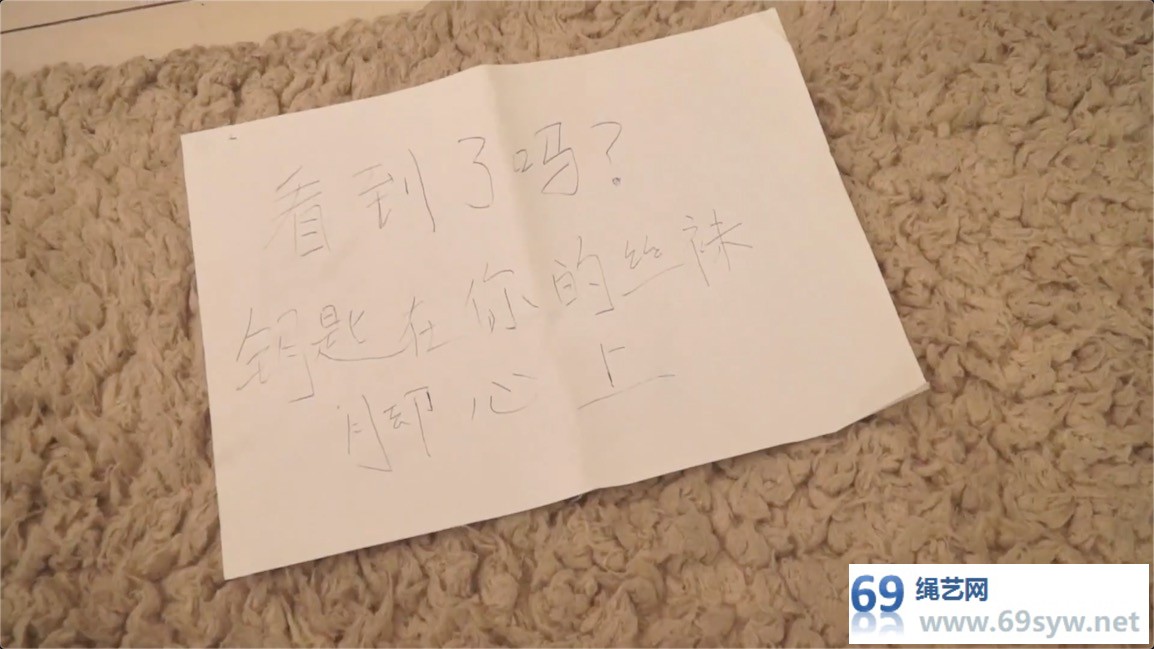 看到了吗?
钥匙在你的丝袜
脚心上
69 绳艺网
www.69syw.net